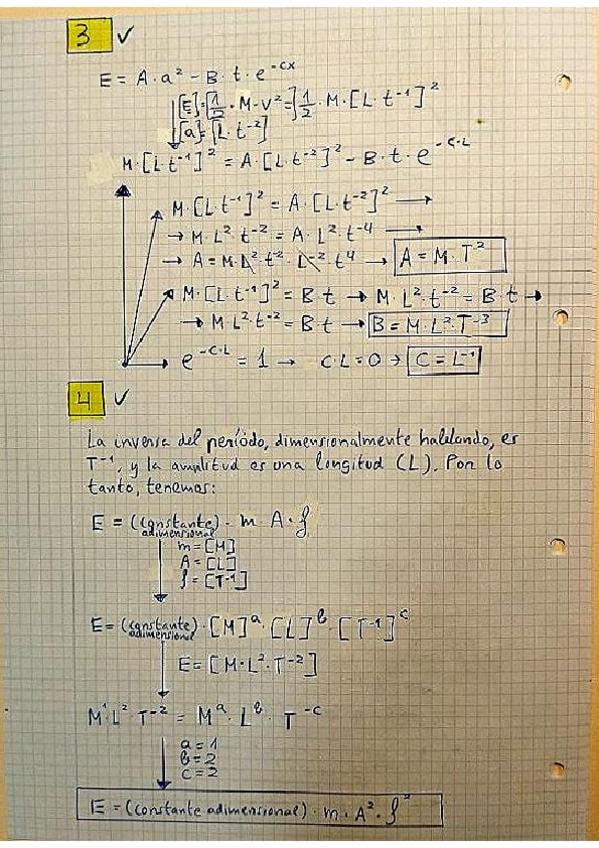 3 ✓
E = A · a² - B · t · e^-cx
[E] = [1/2 · M · v² =] 1/2 · M · [L · t⁻¹]²
[a] = [L · t⁻²]
M · [L · t⁻¹]² = A · [L · t⁻²]² - B · t · e^-c·L
M · [L · t⁻¹]² = A · [L · t⁻²]² →
→ M · L² · t⁻² = A · L² · t⁻⁴ →
→ A = M · L² · t⁻² · L⁻² · t⁴ → A = M · T²
M · [L · t⁻¹]² = B · t → M · L² · t⁻² = B · t →
→ M · L² · t⁻² = B · t → B = M · L² · T⁻³
e^-C·L = 1 → C · L = 0 → C = L⁻¹
4 ✓
La inversa del período, dimensionalmente hablando, es
T⁻¹, y la amplitud es una longitud (L). Por lo
tanto, tenemos:
E = (constante adimensional) · m · A · f
m = [M]
A = [L]
f = [T⁻¹]
E = (constante adimensional) · [M]^a · [L]^b · [T⁻¹]^c
E = [M · L² · T⁻²]
M¹ · L² · T⁻² = M^a · L^b · T^-c
a = 1
b = 2
c = 2
E = (constante adimensional) · m · A² · f²